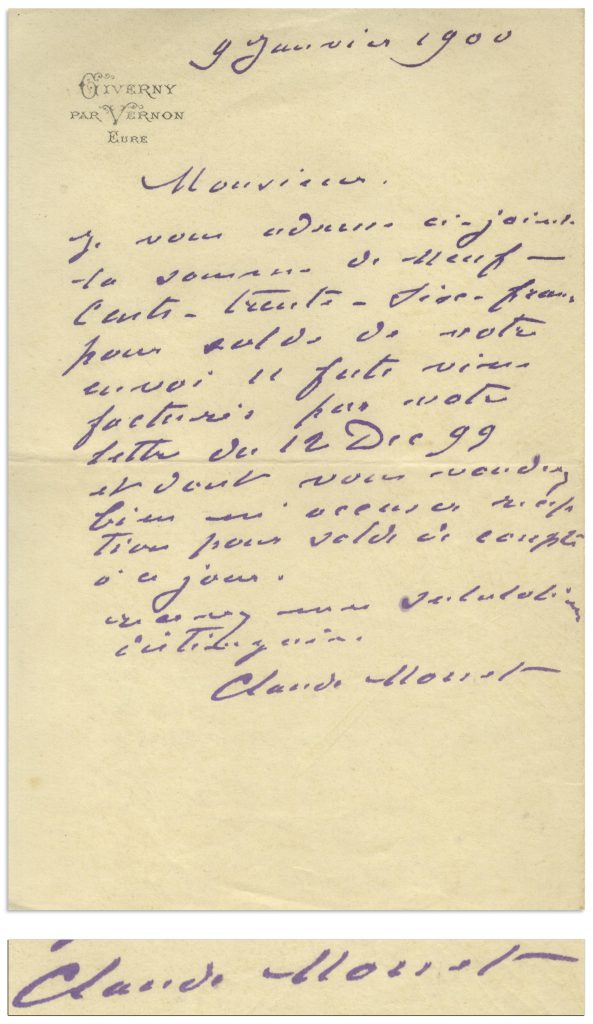 9 Janvier 1900
GIVERNY
PAR VERNON
EURE
Monsieur.
Je vous adresse ci-joint
la somme de Neuf —
Cents - trente - Six - francs
pour solde de votre
envoi 11 futs vins
facturés par votre
lettre du 12 Dec 99
et dont vous voudrez
bien m'accuser récep
tion pour solde de compte
à ce jour.
recevez mes salutations
distinguées.
Claude Monet
Claude Monet